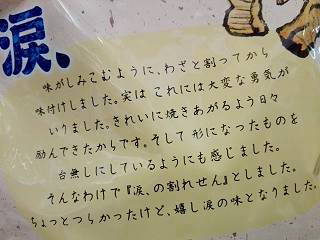 涙、
味がしみこむように、わざと割ってから
味付けしました。実は これには大変な勇気が
いりました。きれいに焼きあがるよう日々
励んできたからです。そして 形になったものを
台無しにしているようにも感じました。
そんなわけで『涙、の割れせん』としました。
ちょっとつらかったけど、嬉し涙の味となりました。